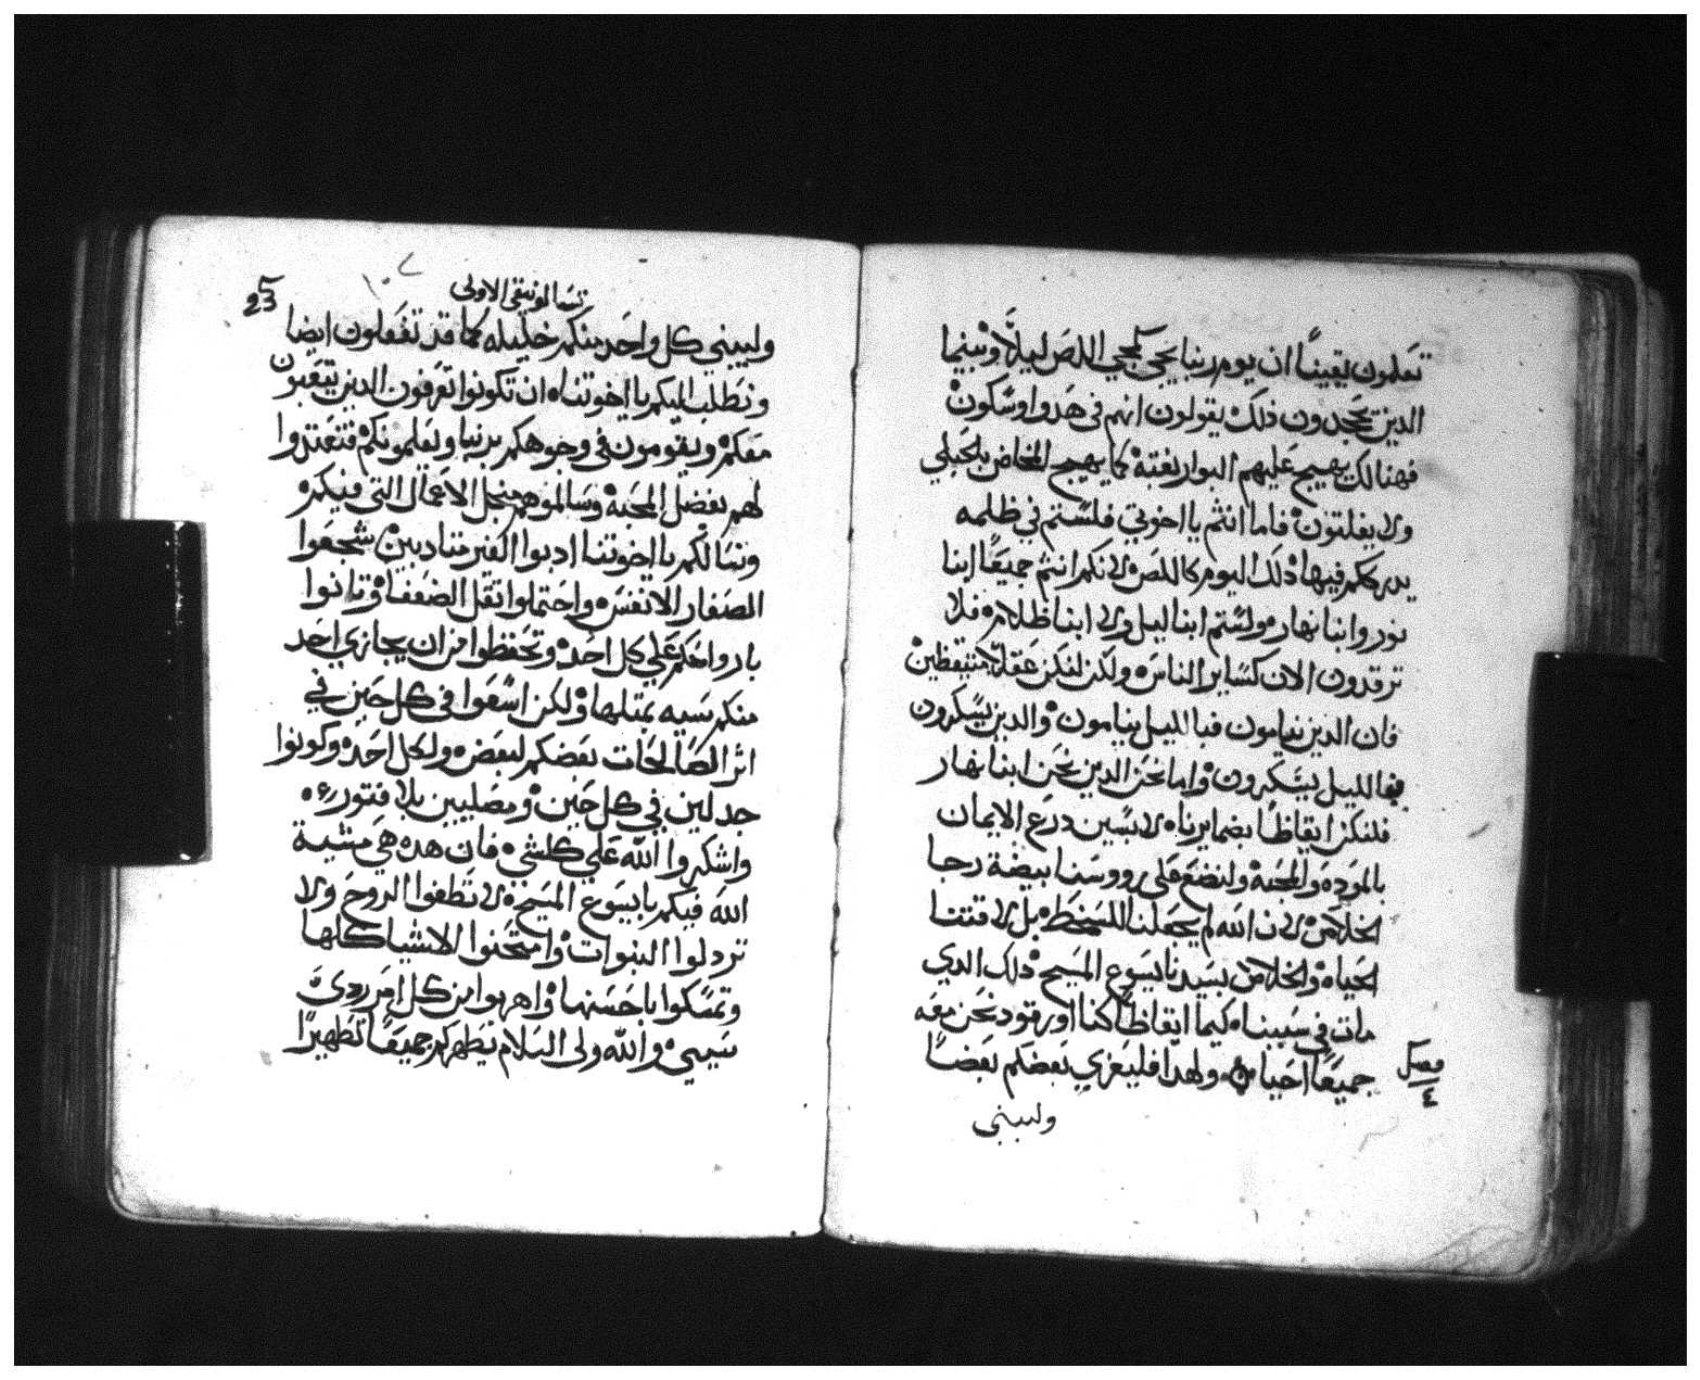 تعلمون يقيناً ان يوم ربنا يجي كمجي اللص ليلاً وبينما
الدين يجحدون ذلك يقولون انهم في هدوا وسكون
فهنالك يهيج عليهم البوار بغتة كما يهيج المخاض بالحبلي
ولا يفلتون فاما انتم يا اخوتي فلستم في ظلمه
يدرككم فيها ذلك اليوم كاللص لانكم انتم جميعاً ابنا
نور وابنا نهار ولستم ابنا ليل ولا ابنا ظلام فلا
ترقدون الان كساير الناس ولكن لنكن عقلا متيقظين
فان الدين ينامون فبالليل ينامون والدين يسكرون
فبالليل يسكرون واما نحن الدين نحن ابنا نهار
فلنكن ايقاظاً بضمايرنا لابسين درع الايمان
بالموده والمحبة ولنضع على رووسنا بيضة رجا
الخلاص لان الله لم يجعلنا للسخط بل لاقتنا
الحياه والخلاص بسيدنا يسوع المسيح ذلك الدي
مات في سببنا كيما ايقاظاً كنا او رقود نحن معه
جميعاً احيا ولهدا فليعزي بعضكم بعضاً
فصل
٤
وليبني
تسالونيقي الاولى
وليبني كل واحد منكم خليله كما قد تفعلون ايضا
ونطلب اليكم يا اخوتنا ان تكونوا تعرفون الدين يتعبون
معكم ويقومون في وجوهكم بربنا ويعلمونكم فتعتدوا
لهم بفضل المحبة وسالموهم منجل الاعمال التي فيكم
ونسالكم يا اخوتنا ادبوا الغير متادبين شجعوا
الصغار الانفس واحتملوا ثقل الضعفا وتانوا
بارواحكم علي كل احد وتحفظوا من ان يجازي احد
منكم سيه بمثلها ولكن اسعوا في كل حين في
اثر الصالحات بعضكم لبعض ولكل احد وكونوا
جدلين في كل حين ومصليين بلا فتور
واشكروا الله علي كلشي فان هده هي مشية
الله فيكم بايسوع المسيح لا تطفوا الروح ولا
تردلوا النبوات وامتحنوا الاشيا كلها
وتمسكوا باحسنها واهربوا من كل امر ردي
سيي والله ولى السلام يطهركم جميعاً تطهيراً